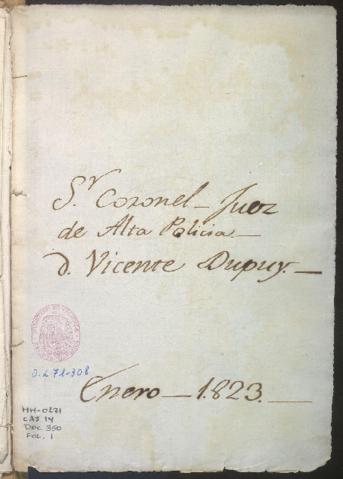 S.r Coronel – Juez
de Alta Policia –
d. Vicente Dupuy. –
O.L 71-308
Enero – 1823. –
HH-0271
CAJ 14
Doc. 350
FOL. 1